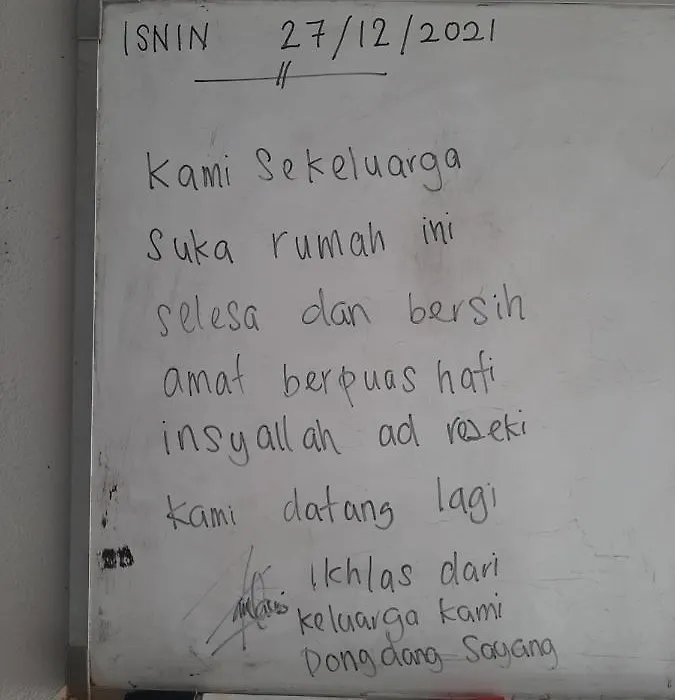 ISNIN 27/12/2021
Kami Sekeluarga
suka rumah ini
selesa dan bersih
amat berpuas hati
insyallah ad reseki
kami datang lagi
Ikhlas dari
keluarga kami
Dongdang Sayang